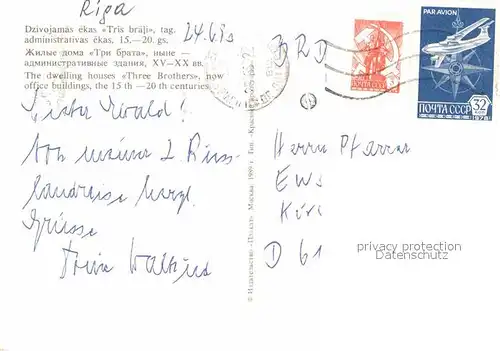 Riga
24.6.90
Dzīvojamās ēkas «Trīs brāļi», tag.
administratīvas ēkas, 15.—20. gs.
Жилые дома «Три брата», ныне —
административные здания, XV—XX вв.
The dwelling houses «Three Brothers», now
office buildings, the 15 th — 20 th centuries
Lieber Ewald!
Von meiner 2. Russ-
landreise herzl.
Grüsse
Dein
© Издательство «Планета». Москва. 1989 г.
BRD
Herrn Pfarrer
D 61
ПОЧТА СССР
PAR AVION
ПОЧТА СССР
32
1978
privacy protection
Datenschutz